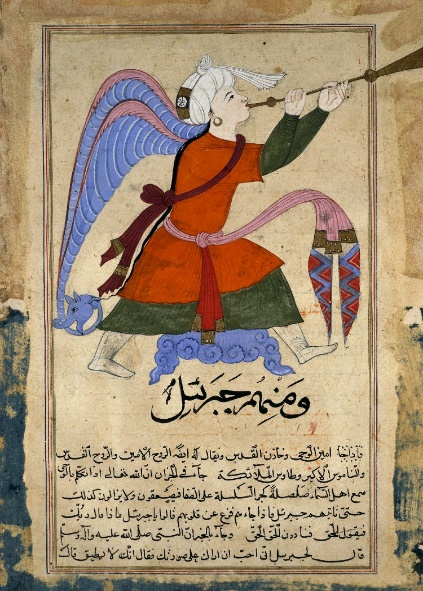 ومنهم جبرئيل
امين الوحي وخازن القدس ويقال له ايضا الروح الامين والروح القدس
والناموس الاكبر وطاوس الملائكة جآ في الخبر ان الله تعالى اذا تكلم بالوحي
سمع اهل السماء صلصلة كجر السلسلة على الصفا فيصعقون ولا يزالون كذلك
حتى ياتيهم جبرئيل فاذا جاءهم فزع عن قلوبهم قالوا يا جبرئيل ماذا قال ربك
فيقول الحق فنادون الحق الحق وجآ الخبر ان النبي صلى الله عليه وآله وسلم
قال لجبرئيل اني احب ان اراك على صورتك فقال انك لا تطيق قال